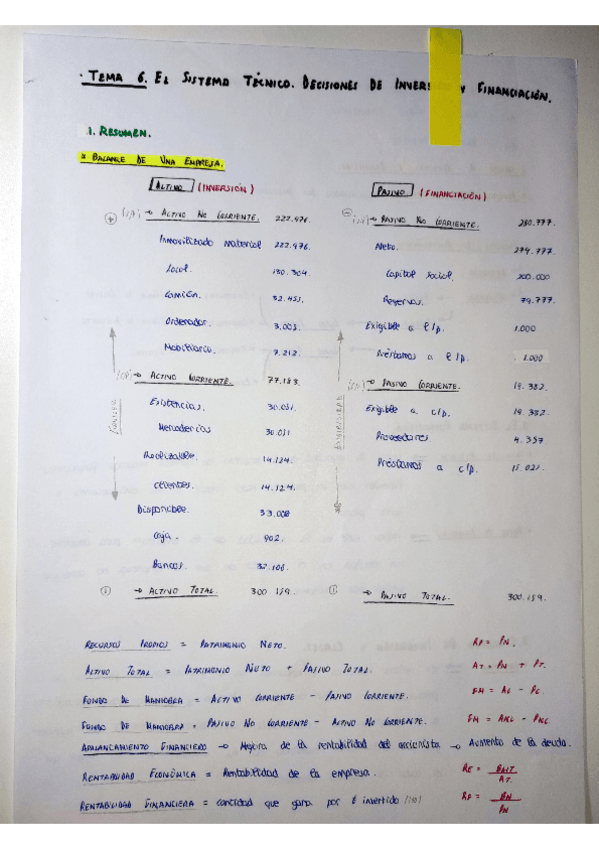 · TEMA 6. EL SISTEMA TÉCNICO. DECISIONES DE INVERSIÓN Y FINANCIACIÓN.
1. RESUMEN.
* BALANCE DE UNA EMPRESA.
ACTIVO (INVERSIÓN) PASIVO (FINANCIACIÓN)
ACTIVO NO CORRIENTE. 222.976. PASIVO NO CORRIENTE. 280.777.
Inmovilizado material 222.976. Neto. 279.777.
Local. 180.304. Capital Social. 200.000
Camión. 32.451. Reservas. 79.777.
Ordenador. 3.005. Exigible a l/p. 1.000
Mobiliario. 7.212. Préstamos a l/p. 1.000
ACTIVO CORRIENTE. 77.183. PASIVO CORRIENTE. 19.382.
Existencias. 30.051. Exigible a c/p. 19.382.
Mercaderías 30.051 Proveedores 4.357
Realizable. 14.124. Préstamos a c/p. 15.025.
Clientes. 14.124.
Disponible. 33.008
Caja. 902.
Bancos. 32.106.
→ ACTIVO TOTAL. 300.159. → PASIVO TOTAL. 300.159.
RECURSOS PROPIOS = PATRIMONIO NETO. RP = PN.
ACTIVO TOTAL = PATRIMONIO NETO + PASIVO TOTAL. AT = PN + PT.
FONDO DE MANIOBRA = ACTIVO CORRIENTE - PASIVO CORRIENTE. FM = AC - PC.
FONDO DE MANIOBRA = PASIVO NO CORRIENTE - ACTIVO NO CORRIENTE.
APALANCAMIENTO FINANCIERO → Mejora de la rentabilidad del accionista → Aumento de la deuda.
RENTABILIDAD ECONÓMICA = Rentabilidad de la empresa. RE = BAIT / AT.
RENTABILIDAD FINANCIERA = cantidad que gana por € invertido RF = BN / PN